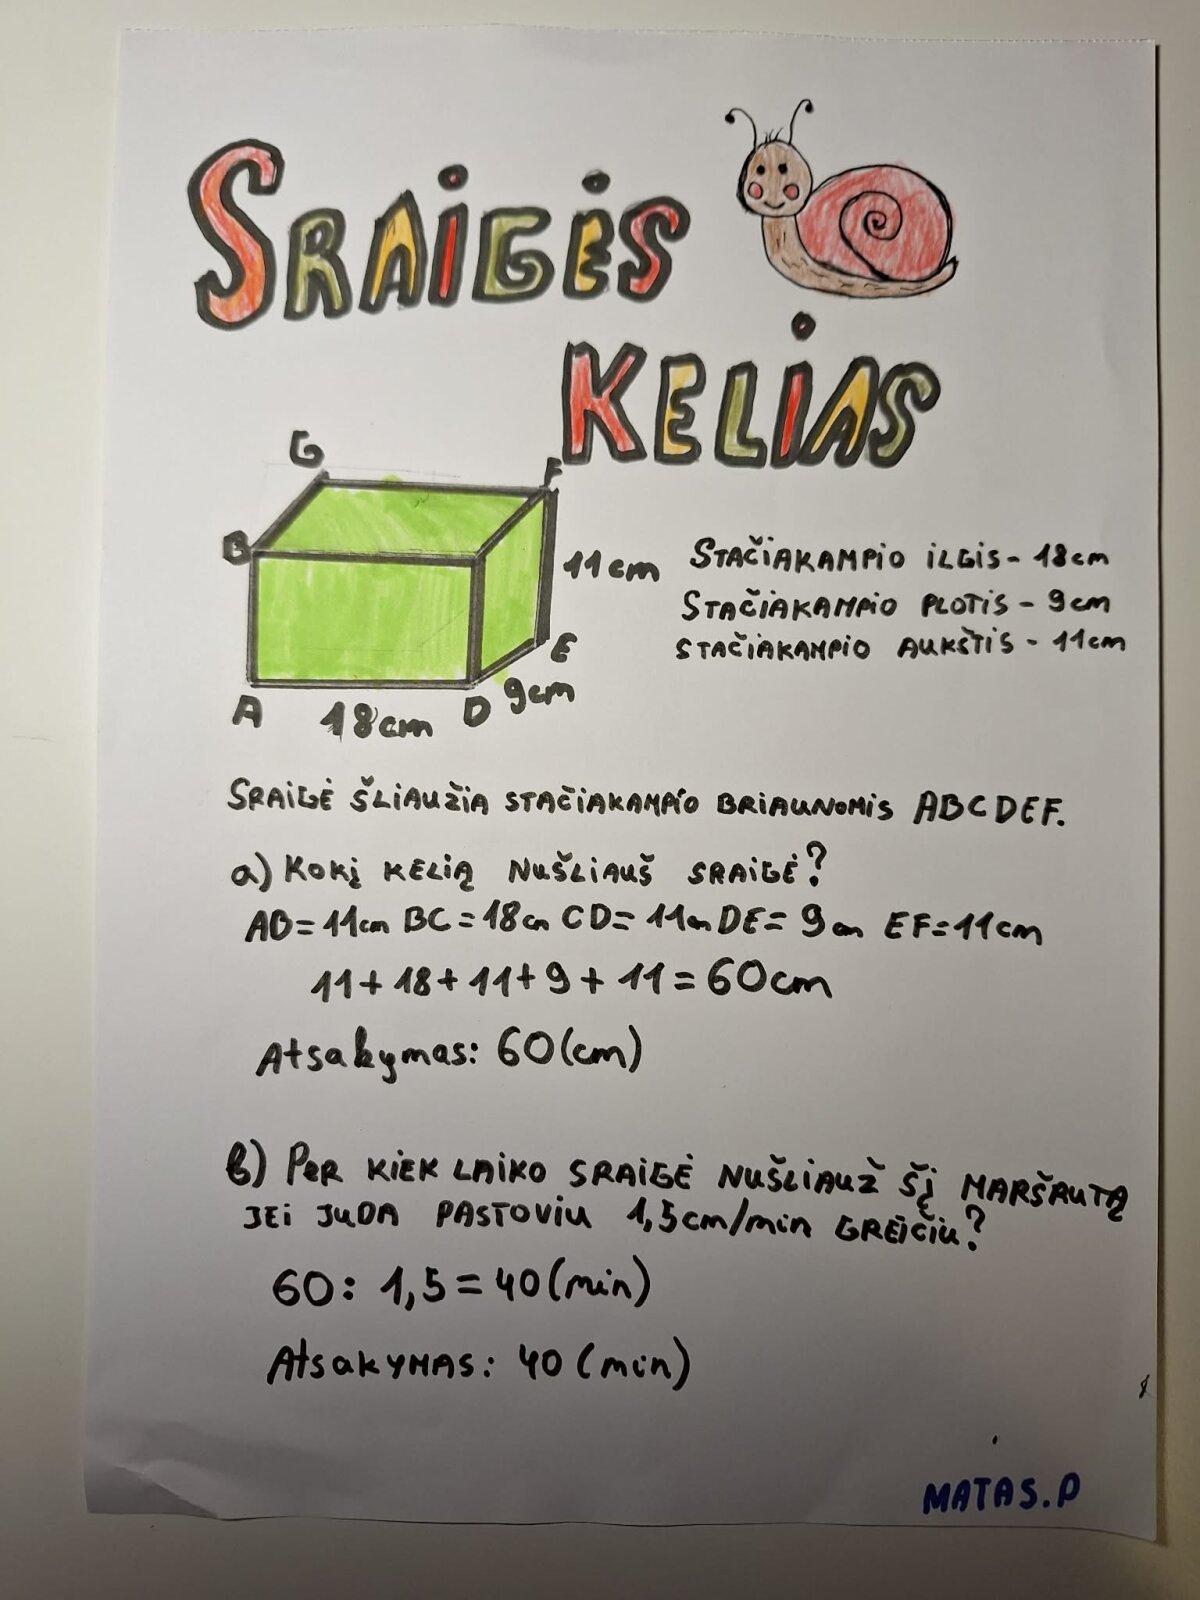 SRAIGĖS
KELIAS
G
F
B
11cm
STAČIAKAMPIO ILGIS - 18cm
STAČIAKAMPIO PLOTIS - 9cm
STAČIAKAMPIO AUKŠTIS - 11cm
E
9cm
A 18cm D
SRAIGĖ ŠLIAUŽIA STAČIAKAMPIO BRIAUNOMIS ABCDEF.
a) KOKĮ KELIĄ NUŠLIAUŠ SRAIGĖ?
AB=11cm BC=18cm CD=11cm DE=9cm EF=11cm
11+18+11+9+11=60cm
Atsakymas: 60(cm)
b) PER KIEK LAIKO SRAIGĖ NUŠLIAUŽ ŠĮ MARŠRUTĄ
JEI JUDA PASTOVIU 1,5cm/min GREIČIU?
60: 1,5=40(min)
AtsakYMAS: 40(min)
MATAS.P